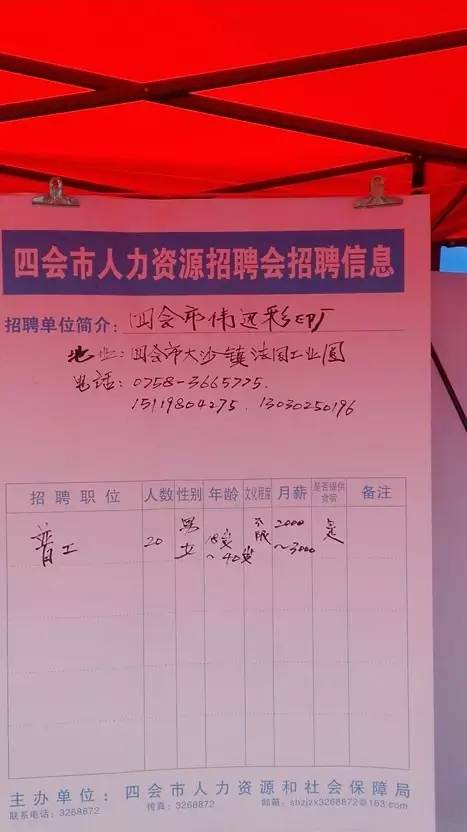 四会市人力资源招聘会招聘信息
招聘单位简介：四会市伟迅彩印厂
地址：四会市大沙镇法国工业园
电话：0758-3665775.
15119804275. 13030250196
招聘职位 人数 性别 年龄 文化程度 月薪 是否提供食宿 备注
普工 20 男女 18岁～40岁 不限 2000～3000 是
主办单位：四会市人力资源和社会保障局
联系电话：3268872 传真：3268872 邮箱：shzjzx3268872@163.com